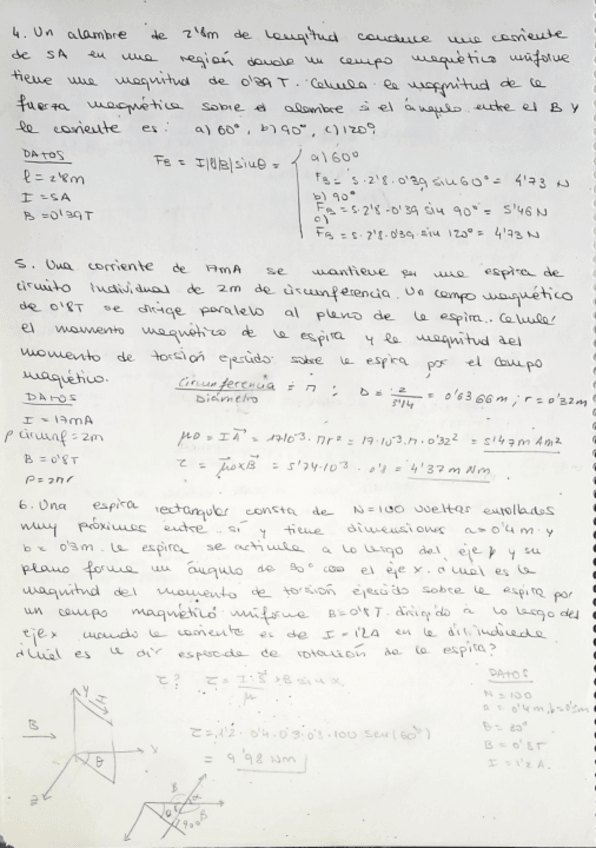 4. Un alambre de 2'8m de longitud conduce una corriente
de 5A en una región donde un campo magnético uniforme
tiene una magnitud de 0'39 T. Calcula la magnitud de la
fuerza magnética sobre el alambre si el ángulo entre el B y
la corriente es: a) 60°, b) 90°, c) 120°
DATOS
l = 2'8m
I = 5A
B = 0'39T
F_B = I|l||B|sinθ =
a) 60°
F_B = 5·2'8·0'39 sin 60° = 4'73 N
b) 90°
F_B = 5·2'8·0'39 sin 90° = 5'46 N
c)
F_B = 5·2'8·0'39·sin 120° = 4'73 N
5. Una corriente de 17mA se mantiene en una espira de
circuito individual de 2m de circunferencia. Un campo magnético
de 0'8T se dirige paralelo al plano de la espira. Calcula:
el momento magnético de la espira y la magnitud del
momento de torsión ejercido sobre la espira por el campo
magnético.
Circunferencia / Diámetro = π ; D = 2 / 3'14 = 0'6366m ; r = 0'32m
DATOS
I = 17mA
P circunf = 2m
B = 0'8T
P = 2πr
μ0 = IA = 17·10^-3·πr² = 17·10^-3·π·0'32² = 5'47m Am²
τ = μ0xB = 5'74·10^-3 · 0'8 = 4'37 m Nm
6. Una espira rectangular consta de N=100 vueltas enrolladas
muy próximas entre sí y tiene dimensiones a=0'4m y
b = 0'3m. La espira se articula a lo largo del eje y y su
plano forma un ángulo de 30° con el eje x. ¿Cuál es la
magnitud del momento de torsión ejercido sobre la espira por
un campo magnético uniforme B=0'8T dirigido a lo largo del
eje x cuando la corriente es de I = 1'2A en la dir. indicada.
¿Cuál es la dir esperada de rotación de la espira?
DATOS
N = 100
a = 0'4m, b = 0'3m
θ = 30°
B = 0'8T
I = 1'2A.
τ? τ = I·S × B sin α
μ
τ = 1'2·0'4·0'3·0'8·100 sen(60°)
= 9'98 Nm
B
y
I
x
θ
z
B
α
θ
90°
B